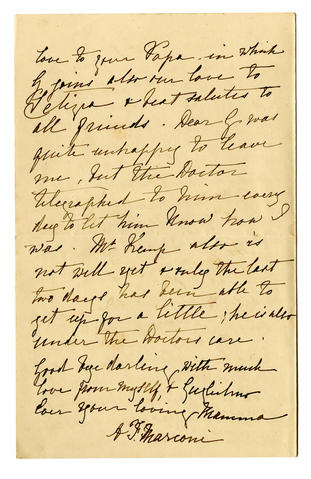 love to your Papa in which
G joins also our love to
& best salutes to
all friends. Dear G was
quite unhappy to leave
me, but the Doctor
telegraphed to him every
day to let him know how I
was. Mr Kemp also is
not well yet & only the last
two days has been able to
get up for a little, he is also
under the Doctors care.
Good bye darling, with much
love from myself & Guglielmo
Ever your loving Mamma
A F Marconi